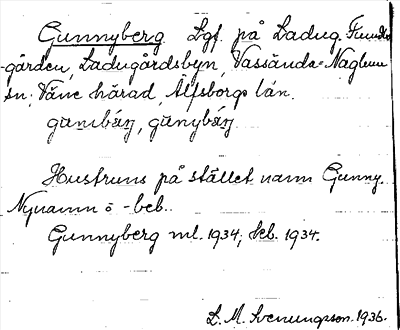 Gunnyberg Lgf. på Ladug.
-gården, Ladugårdsbyn, Vassända-Naglum
sn; Väne härad, Älfsborgs län.
Hustruns på stället namn Gunny.
Nynamn o -beb.
Gunnyberg ml. 1934; beb. 1934.
L. M. Svenungsson. 1936.